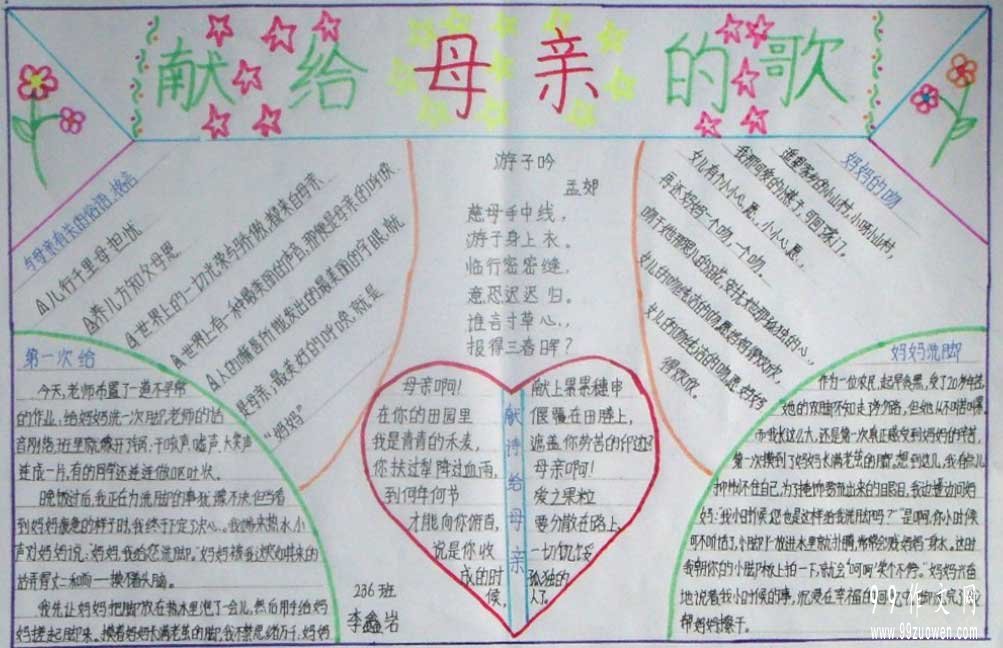 献给母亲的歌
与母亲有关的俗语、格言
△儿行千里母担忧
△养儿方知父母恩
△世界上的一切光荣与骄傲，都来自母亲
△世界上有一种最美丽的声音，那便是母亲的呼唤
△人的嘴唇所能发出的最美丽的字眼，就
是母亲，最美好的呼唤，就是
“妈妈”
游子吟
孟郊
慈母手中线，
游子身上衣。
临行密密缝，
意恐迟迟归。
谁言寸草心，
报得三春晖？
妈妈的吻
遥远的小山村，小呀小山村，
我那可爱的小燕子，可回了家门，
女儿有个小小心愿，小小心愿，
再还妈妈一个吻，一个吻。
吻干她那思儿的泪花，安抚她那孤独的心，
女儿的吻
女儿的吻
得欢欣。
第一次给
今天，老师布置了一道不寻常
的作业，给妈妈洗一次脚，老师的话
音刚落，班里就像开了锅，
连成一片，有的同学还连连做呕吐状。
晚饭过后，我正在为洗脚的事犹豫不决，但当看
到妈妈疲惫的样子时，我终于下定了决心。我端来热水，小
声对妈妈说：“妈妈，我给您洗脚。”妈妈
我先让妈妈把脚放在热水里泡了一会儿，然后用手给妈
妈搓起脚来。摸着妈妈长满老茧的脚，我不禁思绪万千：妈妈
母亲啊！
在你的田园里
我是青青的禾麦，
你扶过犁降过血雨，
到何年何节
才能向你俯首，
说是你收
成的时
候，
献诗给母亲
献上果果穗串
偃覆在田塍上，
遮盖你劳苦的
母亲啊！
爱之果粒
要分散在路上，
一切饥馁
孤独的
人了。
236班
李鑫岩
妈妈洗脚
作为一位农民，起早贪黑，受了20多年苦，
她的双脚不知走了多少路，但她从不叫苦喊
而我长这么大，还是第一次真正感受到妈妈的辛苦，
第一次摸到了妈妈长满老茧的脚。想到这儿，我有些儿
抑制不住自己，为了掩饰要流出来的眼泪，我边
妈：“我小时候，您也是这样给我洗脚吗？”“是啊，你小时候
可不听话了，小脚丫一放进水里就
我朝你的小脚板上拍一下，就会“呵呵”笑个不停。”妈妈兴奋
地说着我小时候的事，沉浸在幸福的回忆之中
帮妈妈擦干。
99作文网
www.99zuowen.com